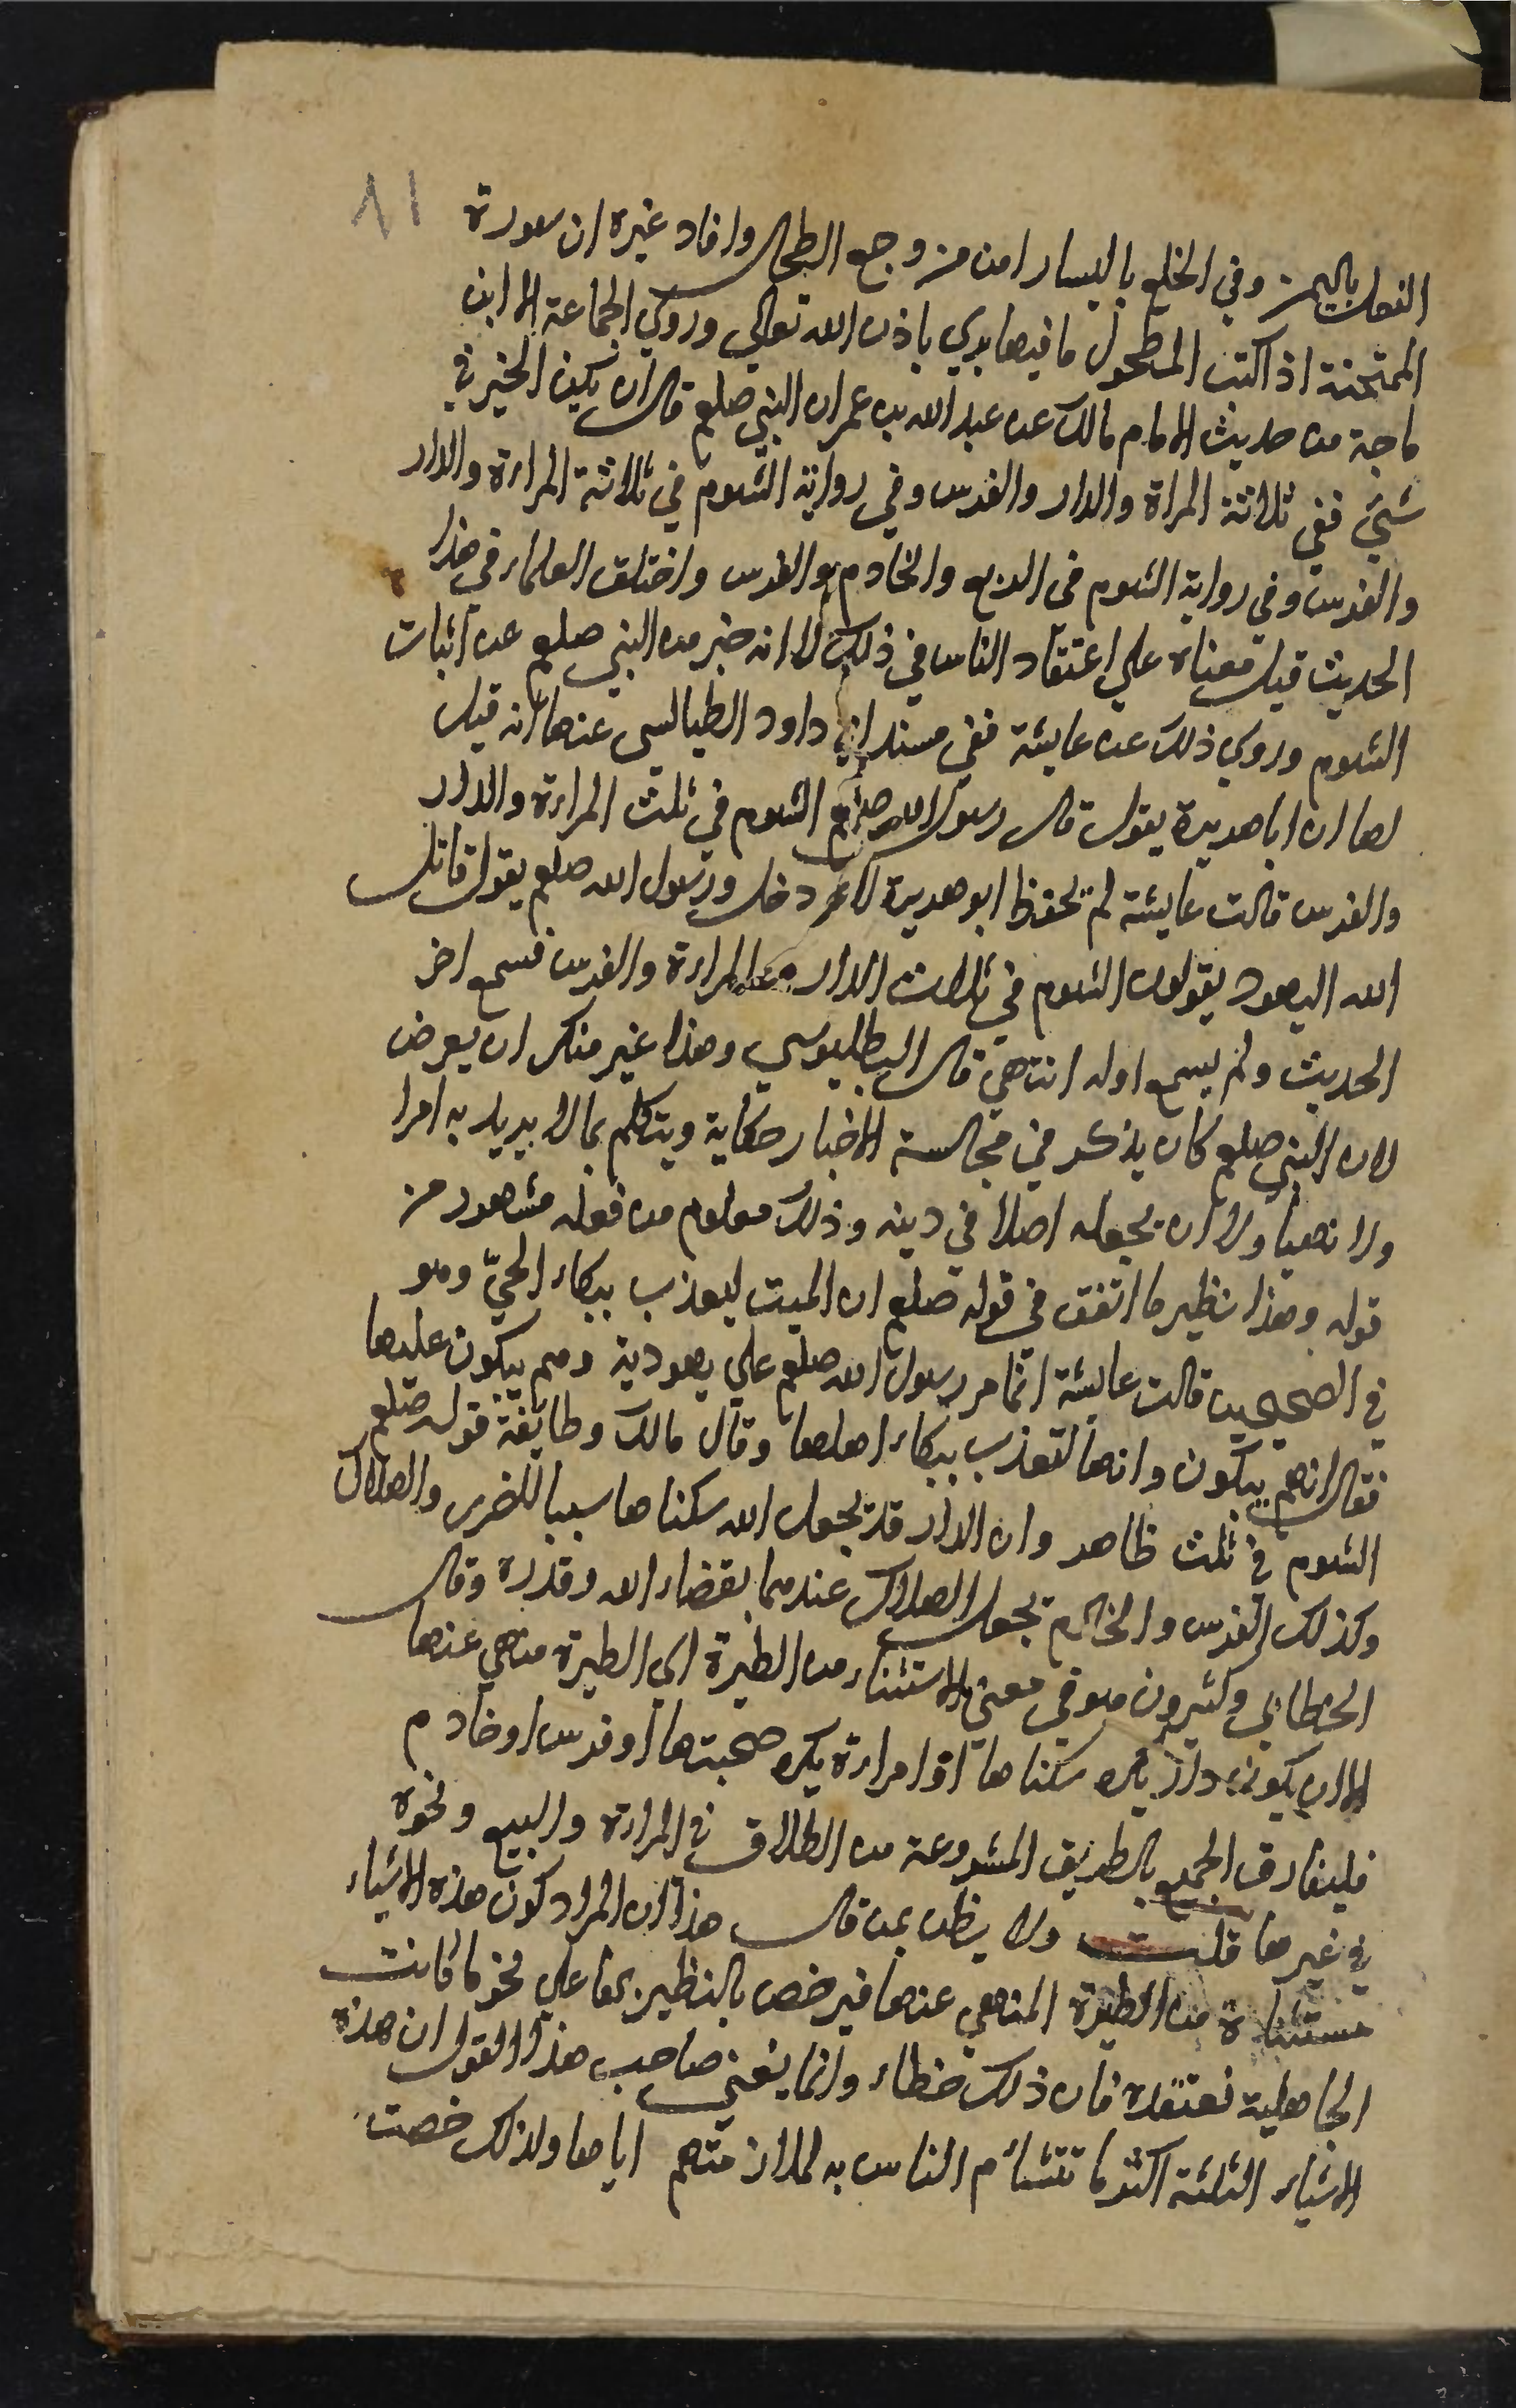 ٨١
النعل باليمين وفي الخلع باليسار امن من وجع الطحال وافاد غيره ان سورة
الممتحنة اذا كتب المطحول ما فيها يبري باذن الله تعالي وروي الجماعة الا ابن
ماجة من حديث الامام مالك عن عبد الله بن عمر ان النبي صلعم قال ان يكن الخير في
شيئ ففي ثلاثة المراة والدار والفرس وفي رواية الشوم في ثلاثة المراءة والدار
والفرس وفي رواية الشوم في الربع والخادم والفرس واختلف العلماء في هذا
الحديث قيل معناه علي اعتقاد الناس في ذلك لا انه خبر من النبي صلعم عن اثبات
الشوم وروي ذلك عن عايشة ففي مسند ابي داود الطيالسي عنها انه قيل
لها ان ابا هريرة يقول قال رسول الله صلعم الشوم في ثلث المراءة والدار
والفرس قالت عايشة لم يحفظ ابو هريرة لانه دخل ورسول الله صلعم يقول قاتل
الله اليهود يقولون الشوم في ثلاث الدار والمراءة والفرس فسمع اخر
الحديث ولم يسمع اوله انتهي قال البطليوسي وهذا غير منكر ان يعرض
لان النبي صلعم كان يذكر في مجالسة الاخبار حكاية ويتكلم بما لا يريد به امرا
ولا نهيا ولا ان يجعله اصلا في دينه وذلك معلوم من فعله مشهور من
قوله وهذا نظير ما اتفق في قوله صلعم ان الميت ليعذب ببكاء الحيّ وهو
في الصحيحين قالت عايشة انما مر رسول الله صلعم علي يهودية وهم يبكون عليها
فقال انهم يبكون وانها لتعذب ببكاء اهلها وقال مالك وطايفة قوله صلعم
الشوم في ثلث ظاهر وان الدار قد يجعل الله سكناها سببا للضرر والهلاك
وكذلك الفرس والخادم يجعل الهلاك عندهما بقضاء الله وقدره وقال
الخطابي وكثيرون هو في معني الاستثناء من الطيرة اي الطيرة منهي عنها
الا ان يكون دار يكره سكناها او امراءة يكره صحبتها او فرس او خادم
فليفارق الجميع بالطريق المشروعة من الطلاق في المراءة والبيع ونحوه
في غيرها قلت ولا يظن بمن قال هذا ان المراد كون هذه الاشياء
مستثناة من الطيرة المنهي عنها فيرخص بالتطير بها علي نحو ما كانت
الجاهلية تعتقده فان ذلك خطاء وانما يعني صاحب هذا القول ان هذه
الاشياء الثلثة اكثر ما تتشاءم الناس به لملازمتهم اياها ولذلك خصت